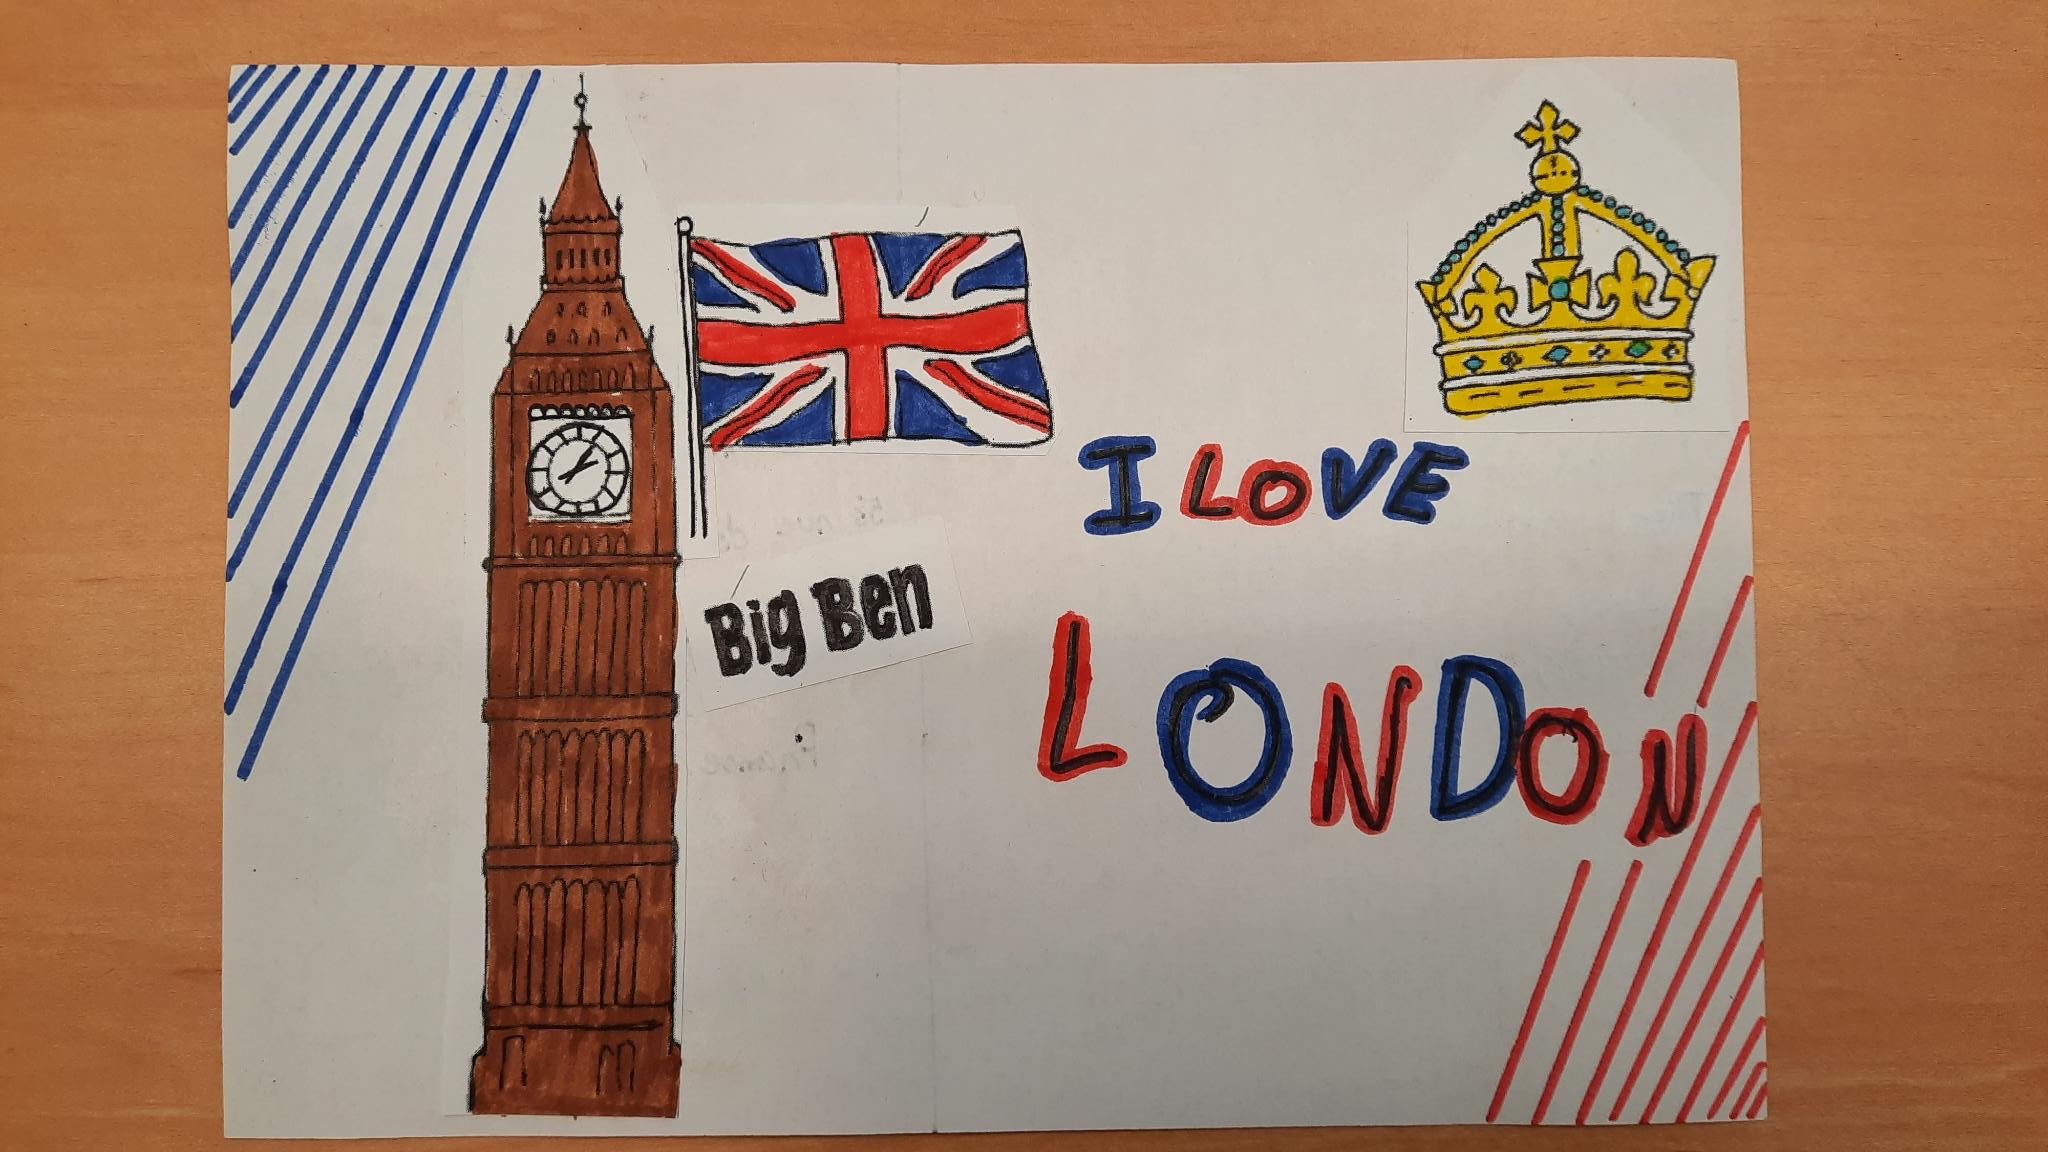 Big Ben
I LOVE
LONDON